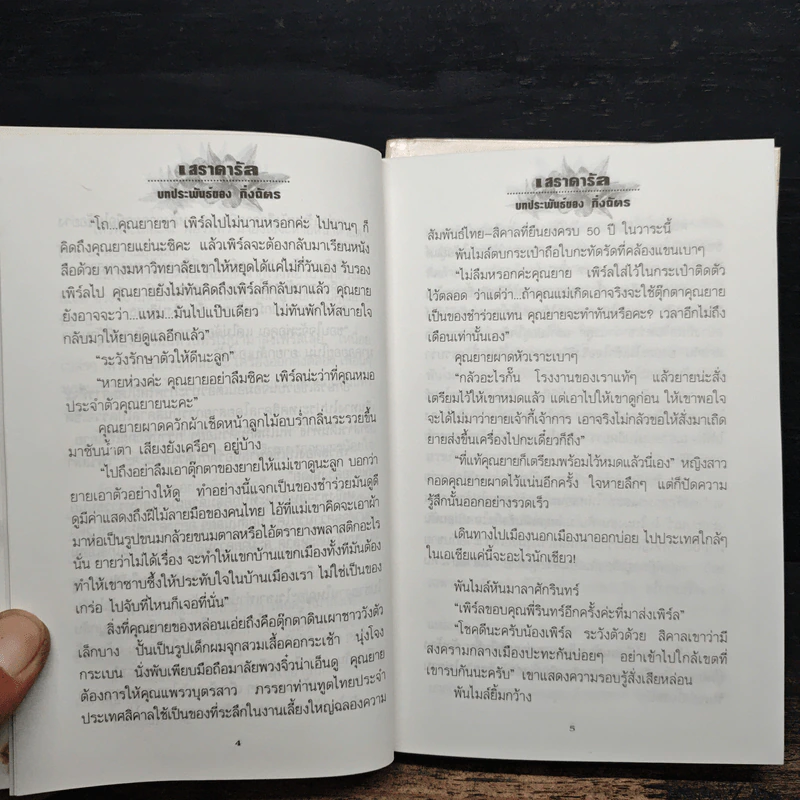 เสราดารัล
บทประพันธ์ของ กิ่งฉัตร
“โถ...คุณยายขา เพิร์ลไปไม่นานหรอกค่ะ ไปนานๆ ก็
คิดถึงคุณยายแย่นะซิคะ แล้วเพิร์ลจะต้องกลับมาเรียนหนัง
สือด้วย ทางมหาวิทยาลัยเขาให้หยุดได้แค่ไม่กี่วันเอง รับรอง
เพิร์ลไป คุณยายยังไม่ทันคิดถึงเพิร์ลก็กลับมาแล้ว คุณยาย
ยังอาจจะว่า...แหม...มันไปแป๊บเดียว ไม่ทันพักให้สบายใจ
กลับมาให้ยายดูแลอีกแล้ว”
“ระวังรักษาตัวให้ดีนะลูก”
“หายห่วงค่ะ คุณยายอย่าลืมซิคะ เพิร์ลน่ะว่าที่คุณหมอ
ประจำตัวคุณยายนะคะ”
คุณยายผาดควักผ้าเช็ดหน้าลูกไม้อบร่ำกลิ่นระรวยขึ้น
มาซับน้ำตา เสียงยังเครือๆ อยู่บ้าง
“ไปถึงอย่าลืมเอาตุ๊กตาของยายให้แม่เขาดูนะลูก บอกว่า
ยายเอาตัวอย่างให้ดู ทำอย่างนี้แจกเป็นของชำร่วยมันดูดี
ดูมีค่าแสดงถึงฝีไม้ลายมือของคนไทย ไอ้ที่แม่เขาคิดจะเอาผ้า
มาห่อเป็นรูปขนมกล้วยขนมตาลหรือไอ้ตรายางพลาสติกอะไร
นั่น ยายว่าไม่ได้เรื่อง จะทำให้แขกบ้านแขกเมืองทั้งทีมันต้อง
ทำให้เขาซาบซึ้งให้ประทับใจในบ้านเมืองเรา ไม่ใช่เป็นของ
เกร่อ ไปจับที่ไหนก็เจอที่นั่น”
สิ่งที่คุณยายของหล่อนเอ่ยถึงคือตุ๊กตาดินเผาชาววังตัว
เล็กบาง ปั้นเป็นรูปเด็กผมจุกสวมเสื้อคอกระเช้า นุ่งโจง
กระเบน นั่งพับเพียบมือถือมาลัยพวงจิ๋วน่าเอ็นดู คุณยาย
ต้องการให้คุณแพรวบุตรสาว ภรรยาท่านทูตไทยประจำ
ประเทศสิคาลใช้เป็นของที่ระลึกในงานเลี้ยงใหญ่ฉลองความ
4
เสราดารัล
บทประพันธ์ของ กิ่งฉัตร
สัมพันธ์ไทย-สิคาลที่ยืนยงครบ 50 ปี ในวาระนี้
พันไมล์ตบกระเป๋าถือใบกะทัดรัดที่คล้องแขนเบาๆ
“ไม่ลืมหรอกค่ะคุณยาย เพิร์ลใส่ไว้ในกระเป๋าติดตัว
ไว้ตลอด ว่าแต่ว่า...ถ้าคุณแม่เกิดเอาจริงจะใช้ตุ๊กตาคุณยาย
เป็นของชำร่วยแทน คุณยายจะทำทันหรือคะ? เวลาอีกไม่ถึง
เดือนเท่านั้นเอง”
คุณยายผาดหัวเราะเบาๆ
“กลัวอะไรกั๊น โรงงานของเราแท้ๆ แล้วยายน่ะสั่ง
เตรียมไว้ให้เขาหมดแล้ว แต่เอาไปให้เขาดูก่อน ให้เขาพอใจ
จะได้ไม่มาว่ายายเจ้ากี้เจ้าการ เอาจริงไม่กลัวขอให้สั่งมาเถิด
ยายส่งขึ้นเครื่องไปกะเดี๋ยวก็ถึง”
“ที่แท้คุณยายก็เตรียมพร้อมไว้หมดแล้วนี่เอง” หญิงสาว
กอดคุณยายผาดไว้แน่นอีกครั้ง ใจหายลึกๆ แต่ก็ปัดความ
รู้สึกนั้นออกอย่างรวดเร็ว
เดินทางไปเมืองนอกเมืองนาออกบ่อย ไปประเทศใกล้ๆ
ในเอเชียแค่นี้จะอะไรนักเชียว!
พันไมล์หันมาลาศักรินทร์
“เพิร์ลขอบคุณพี่รินทร์อีกครั้งค่ะที่มาส่งเพิร์ล”
“โชคดีนะครับน้องเพิร์ล ระวังตัวด้วย สิคาลเขาว่ามี
สงครามกลางเมืองปะทะกันบ่อยๆ อย่าเข้าไปใกล้เขตที่
เขารบกันนะครับ” เขาแสดงความรอบรู้สั่งเสียหล่อน
พันไมล์ยิ้มกว้าง
5